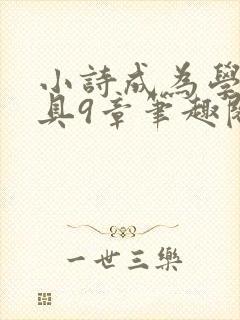 小詩成為學
具9章筆趣閱
一世三樂